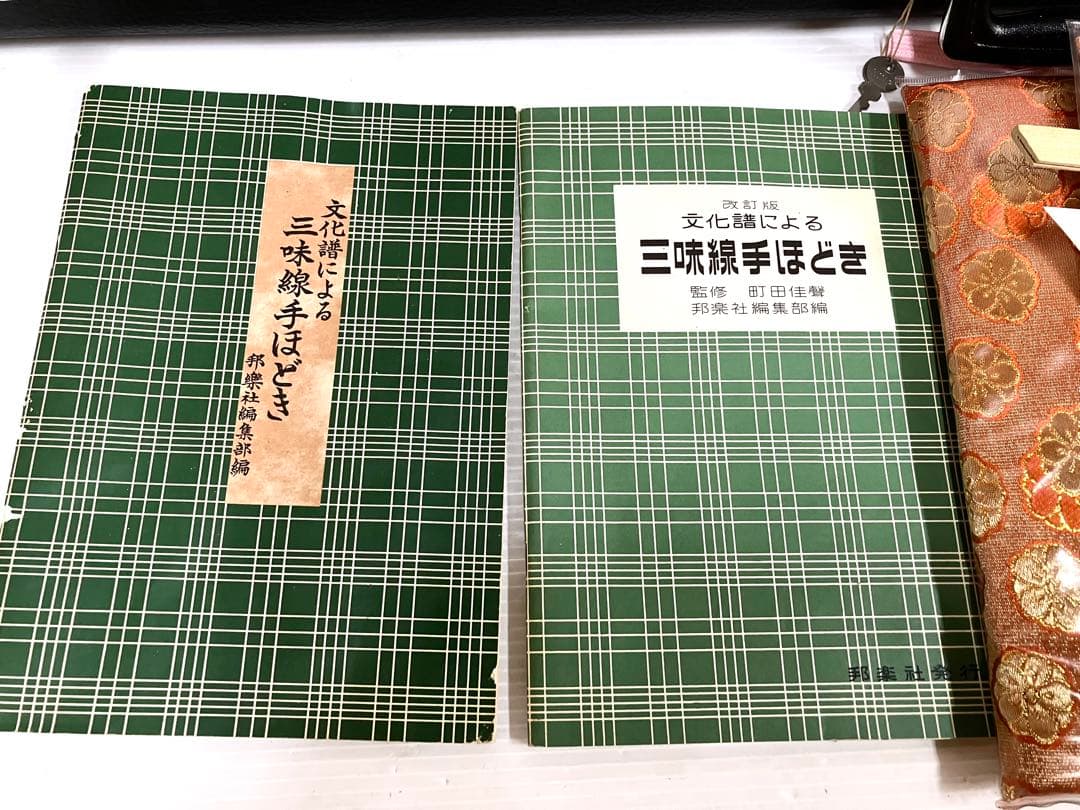 文化譜による
三味線手ほどき
邦樂社編集部編
改訂版
文化譜による
三味線手ほどき
監修 町田佳聲
邦楽社編集部編
邦楽社発行